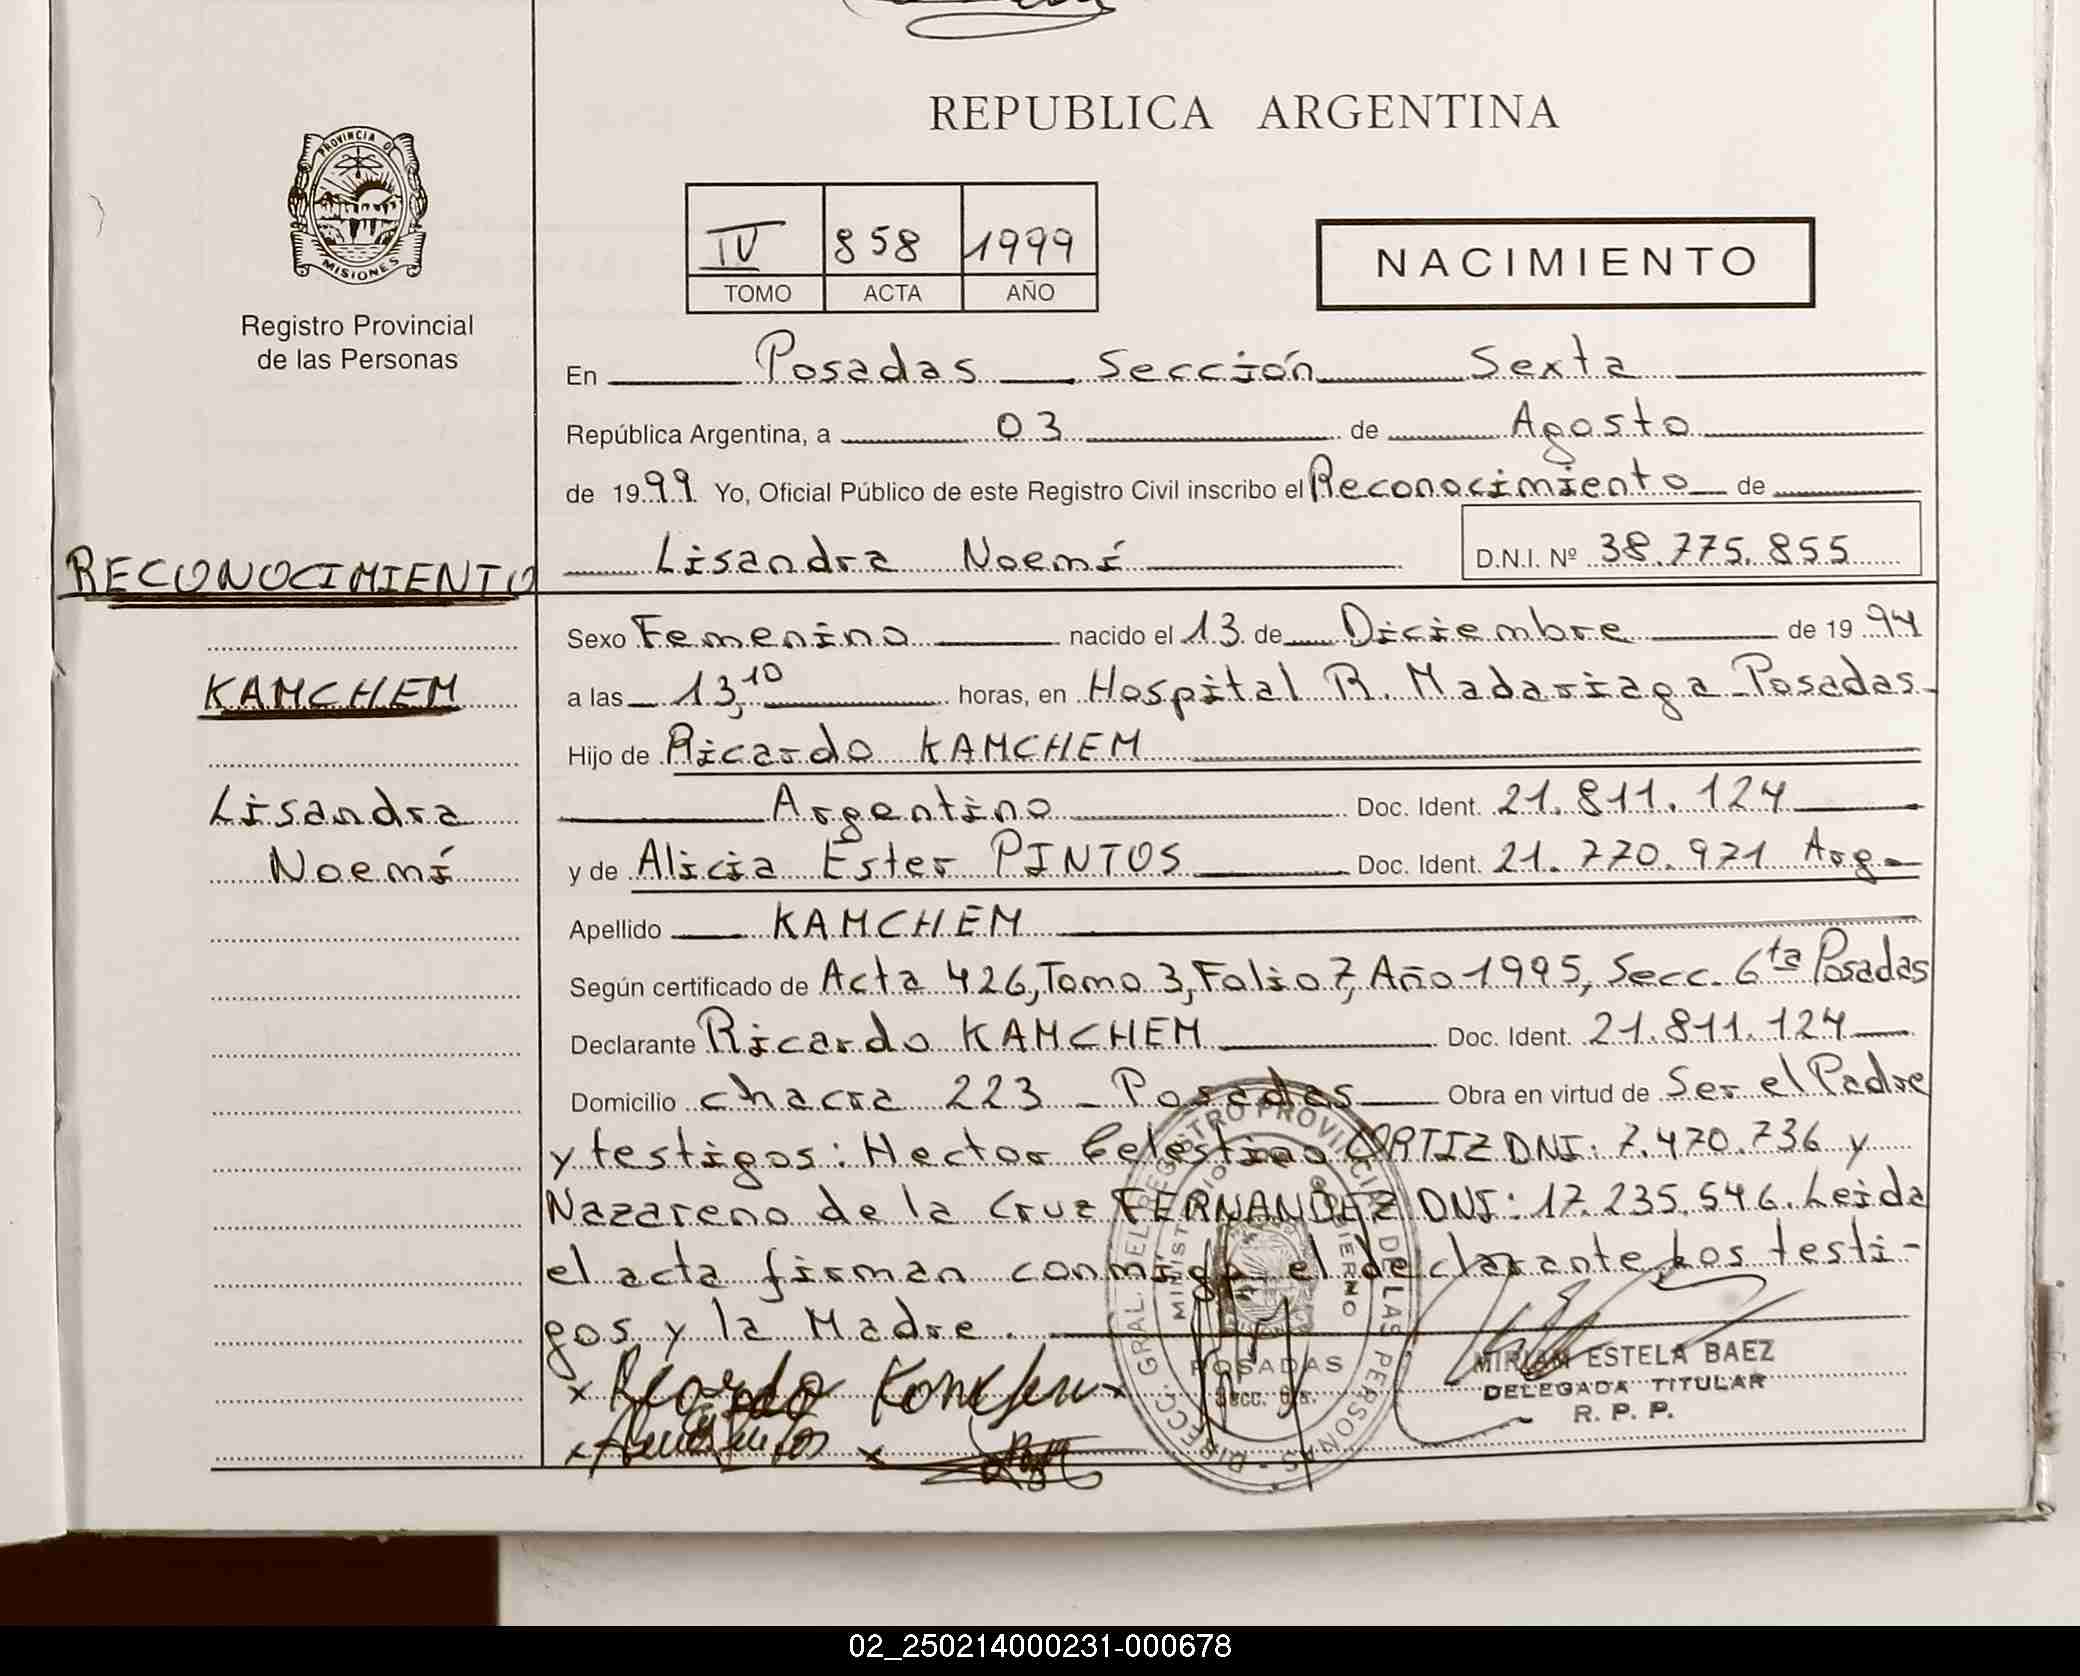 REPUBLICA ARGENTINA
PROVINCIA DE
MISIONES
Registro Provincial
de las Personas
IV 858 1999
TOMO ACTA AÑO
NACIMIENTO
En Posadas Sección Sexta
República Argentina, a 03 de Agosto
de 1999 Yo, Oficial Público de este Registro Civil inscribo el Reconocimiento de
Lisandra Noemí D.N.I. Nº 38.775.855
RECONOCIMIENTO
KAMCHEM
Lisandra
Noemí
Sexo Femenino nacido el 13 de Diciembre de 1994
a las 13,10 horas, en Hospital R. Madariaga - Posadas-
Hijo de Ricardo KAMCHEM
Argentino Doc. Ident. 21.811.124
y de Alicia Ester PINTOS Doc. Ident. 21.770.971 Arg-
Apellido KAMCHEM
Según certificado de Acta 426, Tomo 3, Folio 7, Año 1995, Secc. 6ta Posadas
Declarante Ricardo KAMCHEM Doc. Ident. 21.811.124
Domicilio chacra 223 - Posadas Obra en virtud de Ser el Padre
y testigos: Hector Celestino ORTIZ DNI: 7.470.736 y
Nazareno de la Cruz FERNANDEZ DNI: 17.235.546. Leida
el acta firman conmigo el declarante los testi-
gos y la Madre.
DIRECC. GRAL. DEL REGISTRO PROVINCIAL DE LAS PERSONAS
MINISTERIO DE GOBIERNO
POSADAS
Secc. 6a.
MIRIAM ESTELA BAEZ
DELEGADA TITULAR
R. P. P.
x Ricardo Kamchem x
x x
02_250214000231-000678